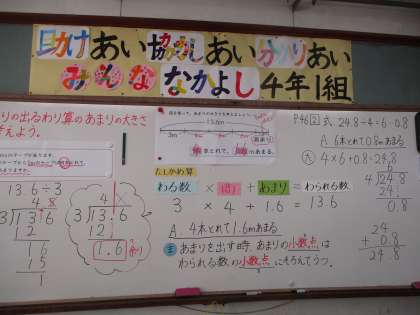 助けあい 協力しあい かかりあい
みんな なかよし 4年1組
りの出るわり算のあまりの大きさ
考えよう。
13.6÷3
4.8
3)13.6
12
16
15
1
3)13.6
12
1.6
13.6m
3m
本とれて、 mあまる。
たしかめ算
わる数 × 商 + あまり = わられる数
3 × 4 + 1.6 = 13.6
A 4本とれて1.6mあまる
ま あまりを出す時、あまりの小数点は
わられる数の小数点にそろえてうつ。
P46 2 式 24.8÷4=6…0.8
A 6本とれて0.8mあまる
た 4×6+0.8=24.8
6
4)24.8
24
0.8
24
+ 0.8
24.8